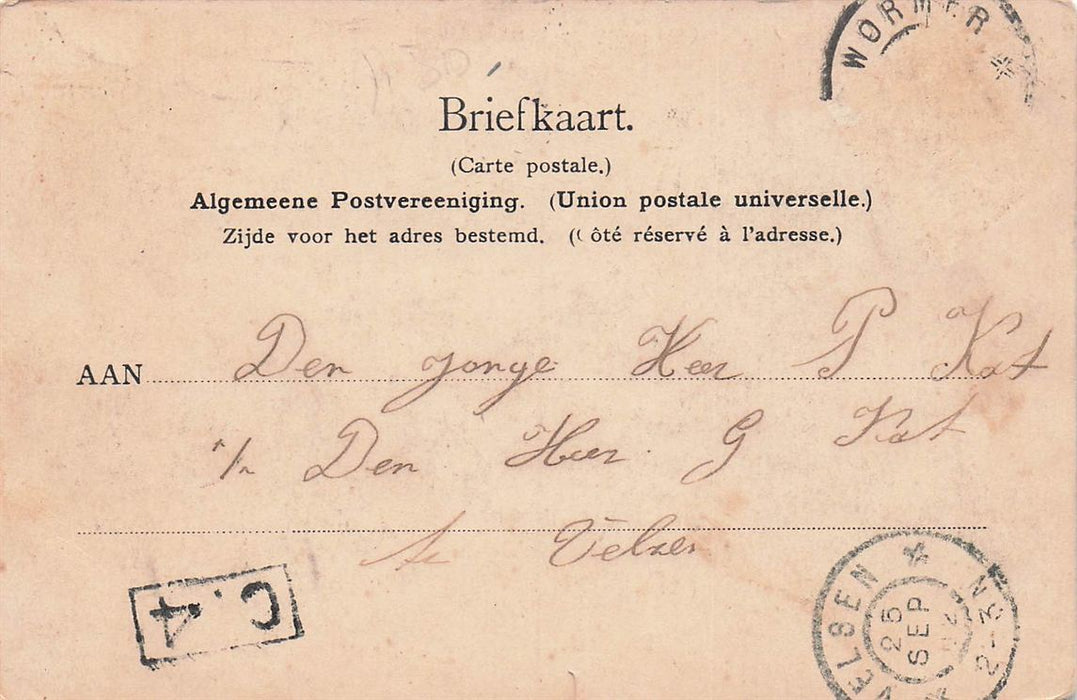 WORMER
Briefkaart.
(Carte postale.)
Algemeene Postvereeniging. (Union postale universelle.)
Zijde voor het adres bestemd. (Côté réservé à l'adresse.)
AAN Den jonge Heer P Kat
Den Heer G Kat
te Velzen
C.4
VELSEN
25
SEP
2-3N